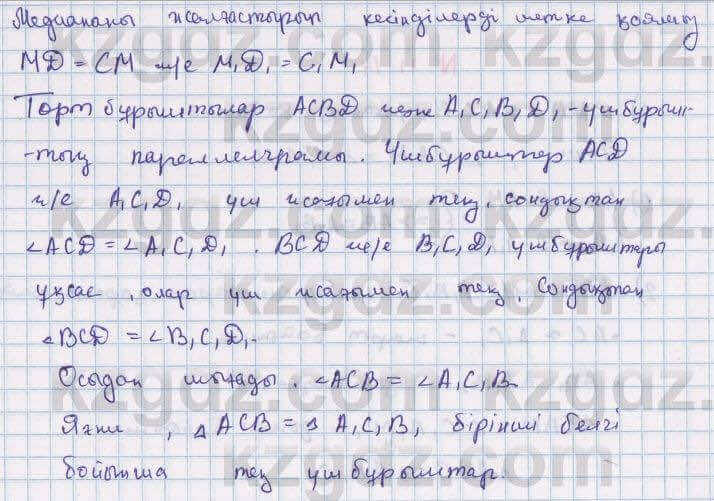 Медиананы жалғастырып кесінділерді шетке қоямыз
MD = CM ж/е M₁D₁ = C₁M₁
Төрт бұрыштылар ACBD және A₁C₁B₁D₁ - үшбұрыш-
-тың параллелограмы. Үшбұрыштар ACD
ж/е A₁C₁D₁ үш жағымен тең, сондықтан
∠ACD = ∠A₁C₁D₁. BCD ж/е B₁C₁D₁ үшбұрыштары
ұқсас, олар үш жағымен тең. Сондықтан
∠BCD = ∠B₁C₁D₁.
Осыдан шығады. ∠ACB = ∠A₁C₁B₁
Яғни, △ACB = △A₁C₁B₁ бірінші белгі
бойынша тең үшбұрыштар.
kzgdz.com